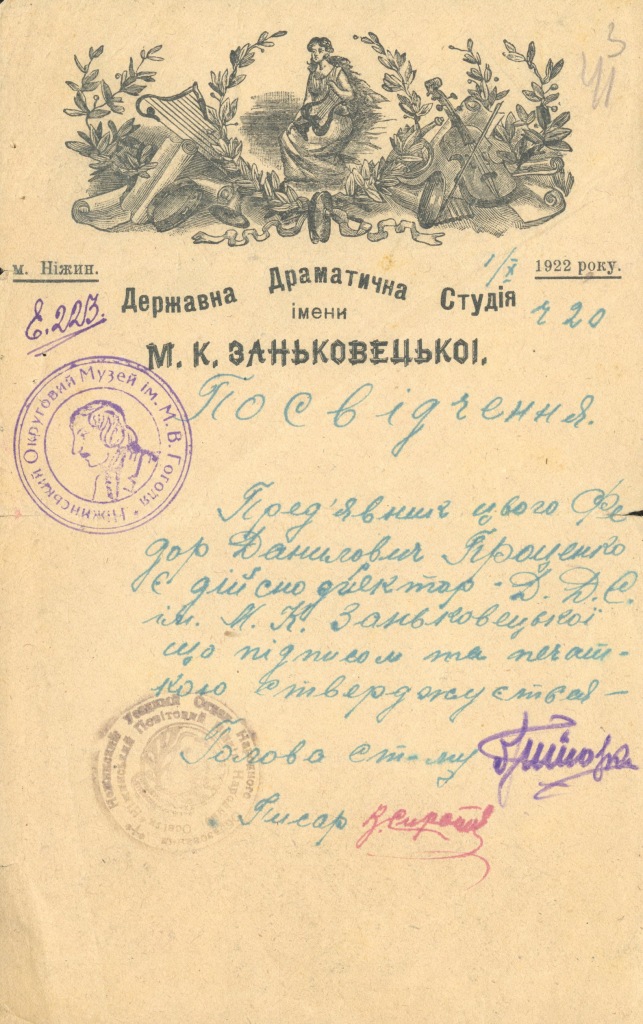 3
41
м. Ніжин.
1/X 1922 року.
Державна Драматична Студія
імени
ч 20
Е.223.
М. К. ЗАНЬКОВЕЦЬКОІ.
Ніжинський Округовий Музей ім. М. В. Гоголя
Посвідчення.
Пред'явник цього Фе-
дор Данилович Проценко
є дійсно директор - Д. Д. С.
ім. М. К. Заньковецької
що підписом та печат-
кою стверджується -
Голова ст-му
Писар